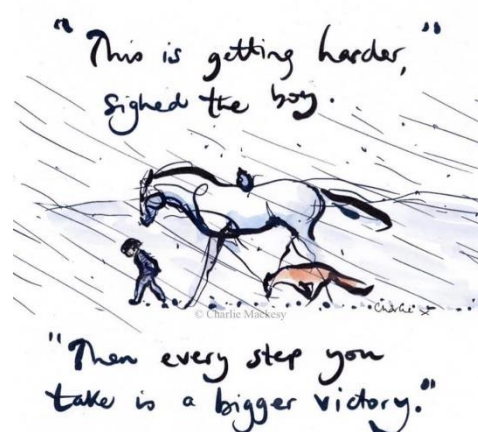 "This is getting harder,"
sighed the boy.
Charlie
© Charlie Mackesy
"Then every step you
take is a bigger victory."